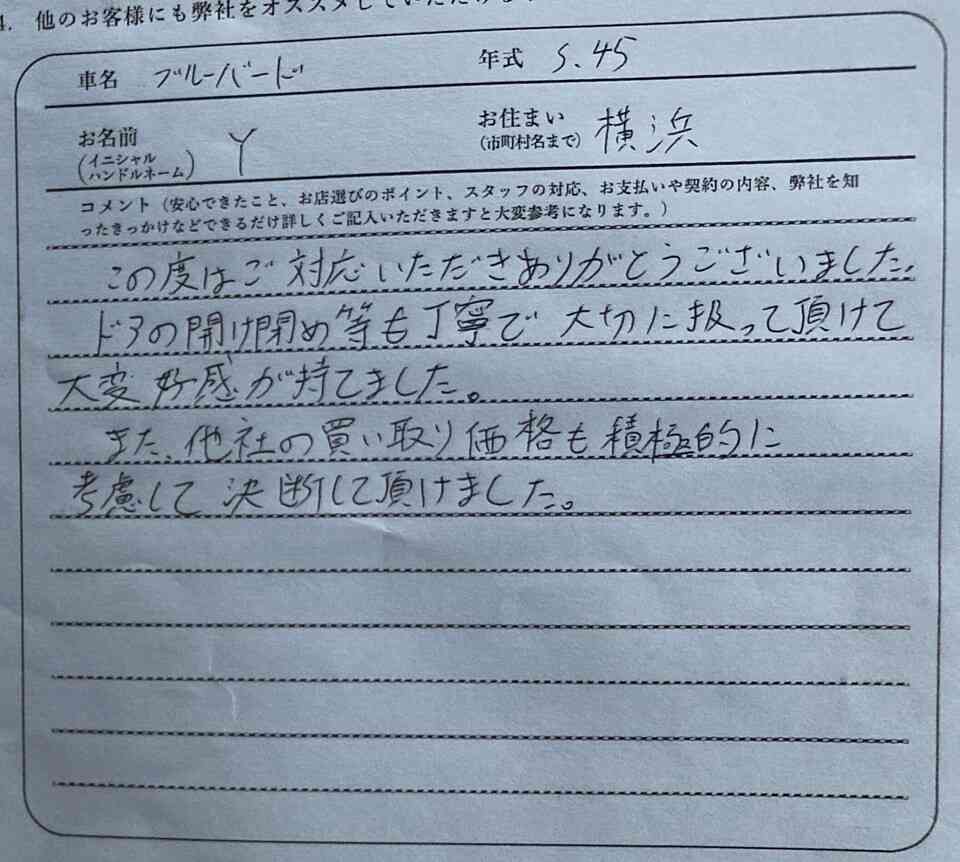 4. 他のお客様にも弊社をオススメしていただけま
車名 ブルーバード 年式 S.45
お名前 (イニシャル ハンドルネーム) Y お住まい (市町村名まで) 横浜
コメント（安心できたこと、お店選びのポイント、スタッフの対応、お支払いや契約の内容、弊社を知
ったきっかけなどできるだけ詳しくご記入いただきますと大変参考になります。）
この度はご対応いただきありがとうございました。
ドアの開け閉め等も丁寧で大切に扱って頂けて
大変好感が持てました。
また、他社の買い取り価格も積極的に
考慮して決断して頂けました。